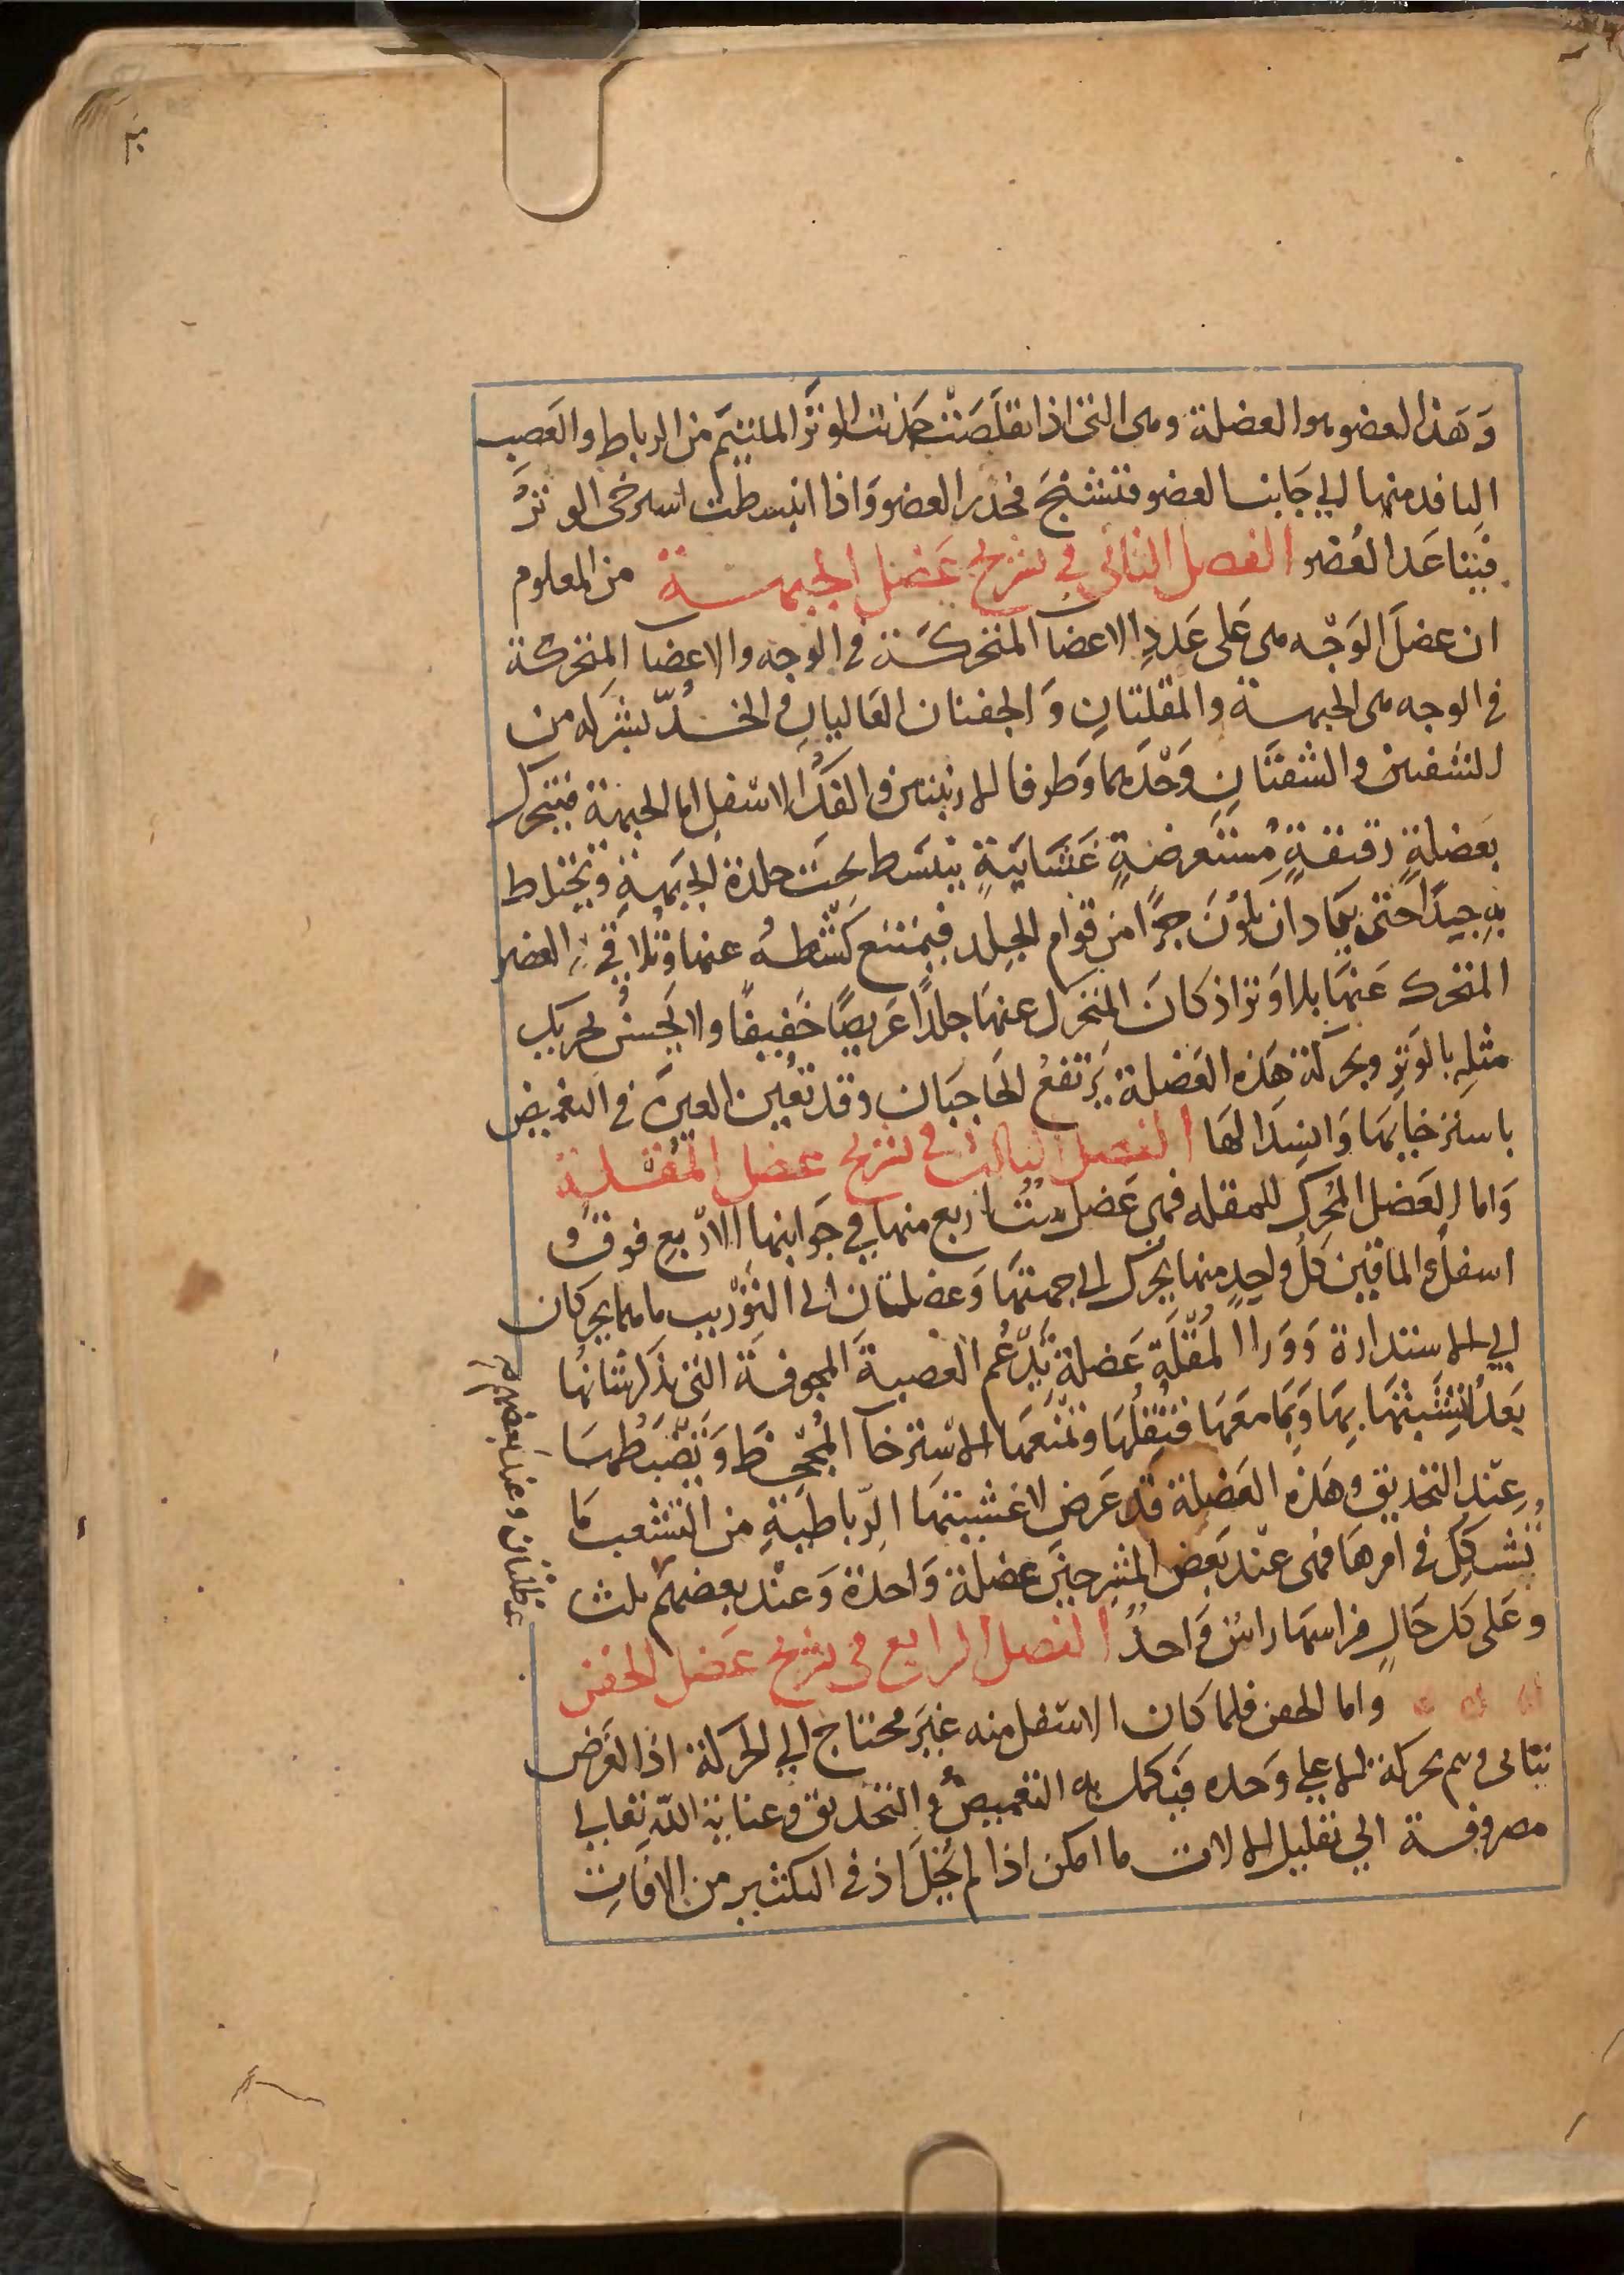 وَهَذا العضو هو العضلة وهى التى اذا تقلصَت جَذبَت الوَتَر الملتئم من الرباط والعَصب
النافد منها الي جَانب العضو فتشنجَ فجذر العضو وَاذا انبسطت استرخى الوتَرُ
فيتباعَد العُضو الفصل الثانى فى تشريح عَضل الجبهــة من المعلوم
ان عضلَ الوَجْه هى عَلى عَددِ الاعضا المتحركَــة فى الوجه والاعضا المتحركة
فى الوجه هى الجبهــة والمقلتَانِ وَالجفنان العَاليانِ والخــدّ بشركه من
الشفتين والشفتَانِ وَحْدهما وَطرفا الارنبتين والفَكُّ الاسْفل اما الجبهة فيتحرك
بعَضلةٍ دقيقةٍ مُستَعرضةٍ غَشَايَيةٍ ينبَسَط تحت جلدة الجبَهةِ وتختلط
بهِ جيدًا حتى يكاد ان يكونَ جزًا من قوام الجِلد فيمتنع كشطـهُ عنها وَتلاقي العضو
المتحرك عَنهَا بلا وَتر اذ كانَ المتحرك عنهَا جلدًا عَريضًا خَفيفًا ولا يَحسُنُ تحريك
مثلِهِ بالوَترِ وبحركة هَذه العَضلة يَرتفعُ الحَاجبَان وقد تعُين العين فى التغميض
باسترخايهَا وَانسِدَالهَا الفصل الثالث فى تشريح عضل المقــلة
وَاما العَضل المحُرك للمقله فهي عَضل ستُ اربع منها في جَوانبها الاَرْبع فوق و
اسفل والماقين كلُّ وَاحِدٍ منها يُحرّك الى جهتهَا وَعضلتان الى التَوْريب ما هما يحركان
الي الاستدارة وَوَراا لمُقْلَةِ عَضلة يَدْعُم العَصبةَ المجوفةَ التى نذكر شَانهَا
بَعدُ لتشبثهَا بهَا وَبَما معَهَا فتُقلّهَا وتمنَعهَا الاسْترخا المُجُحِظ وَتضْبَطُهــَا
عنِد التحديق وهَذه العَضلة قد عَرض لاغشيتهَا الرّباطيَّةِ من التشعب مَا
شكك فى امرهَا فهى عنْد بَعض المشرحينَ عضلة وَاحدة وَعند بعضهم ثلث
وعَلى كل حَالٍ فراسهَا راسٌ وَاحدٌ الفصل الرابع فى تشريح عَضل الجفن
واما الجفن فلما كان الاسفل منه غيَر محتاج الي الحركة اذا الغَرض
يتاتى ويتم بحركة الاعلي وَحده فيَكمل به التغميضُ والتحديق وعناية اللهِ تعالي
مصروفــة الي تقليل الالات ما امكن اذا لم يُخِلَّ اذ فى التكثير من الافاتِ
عضلتان وعند بعضهم